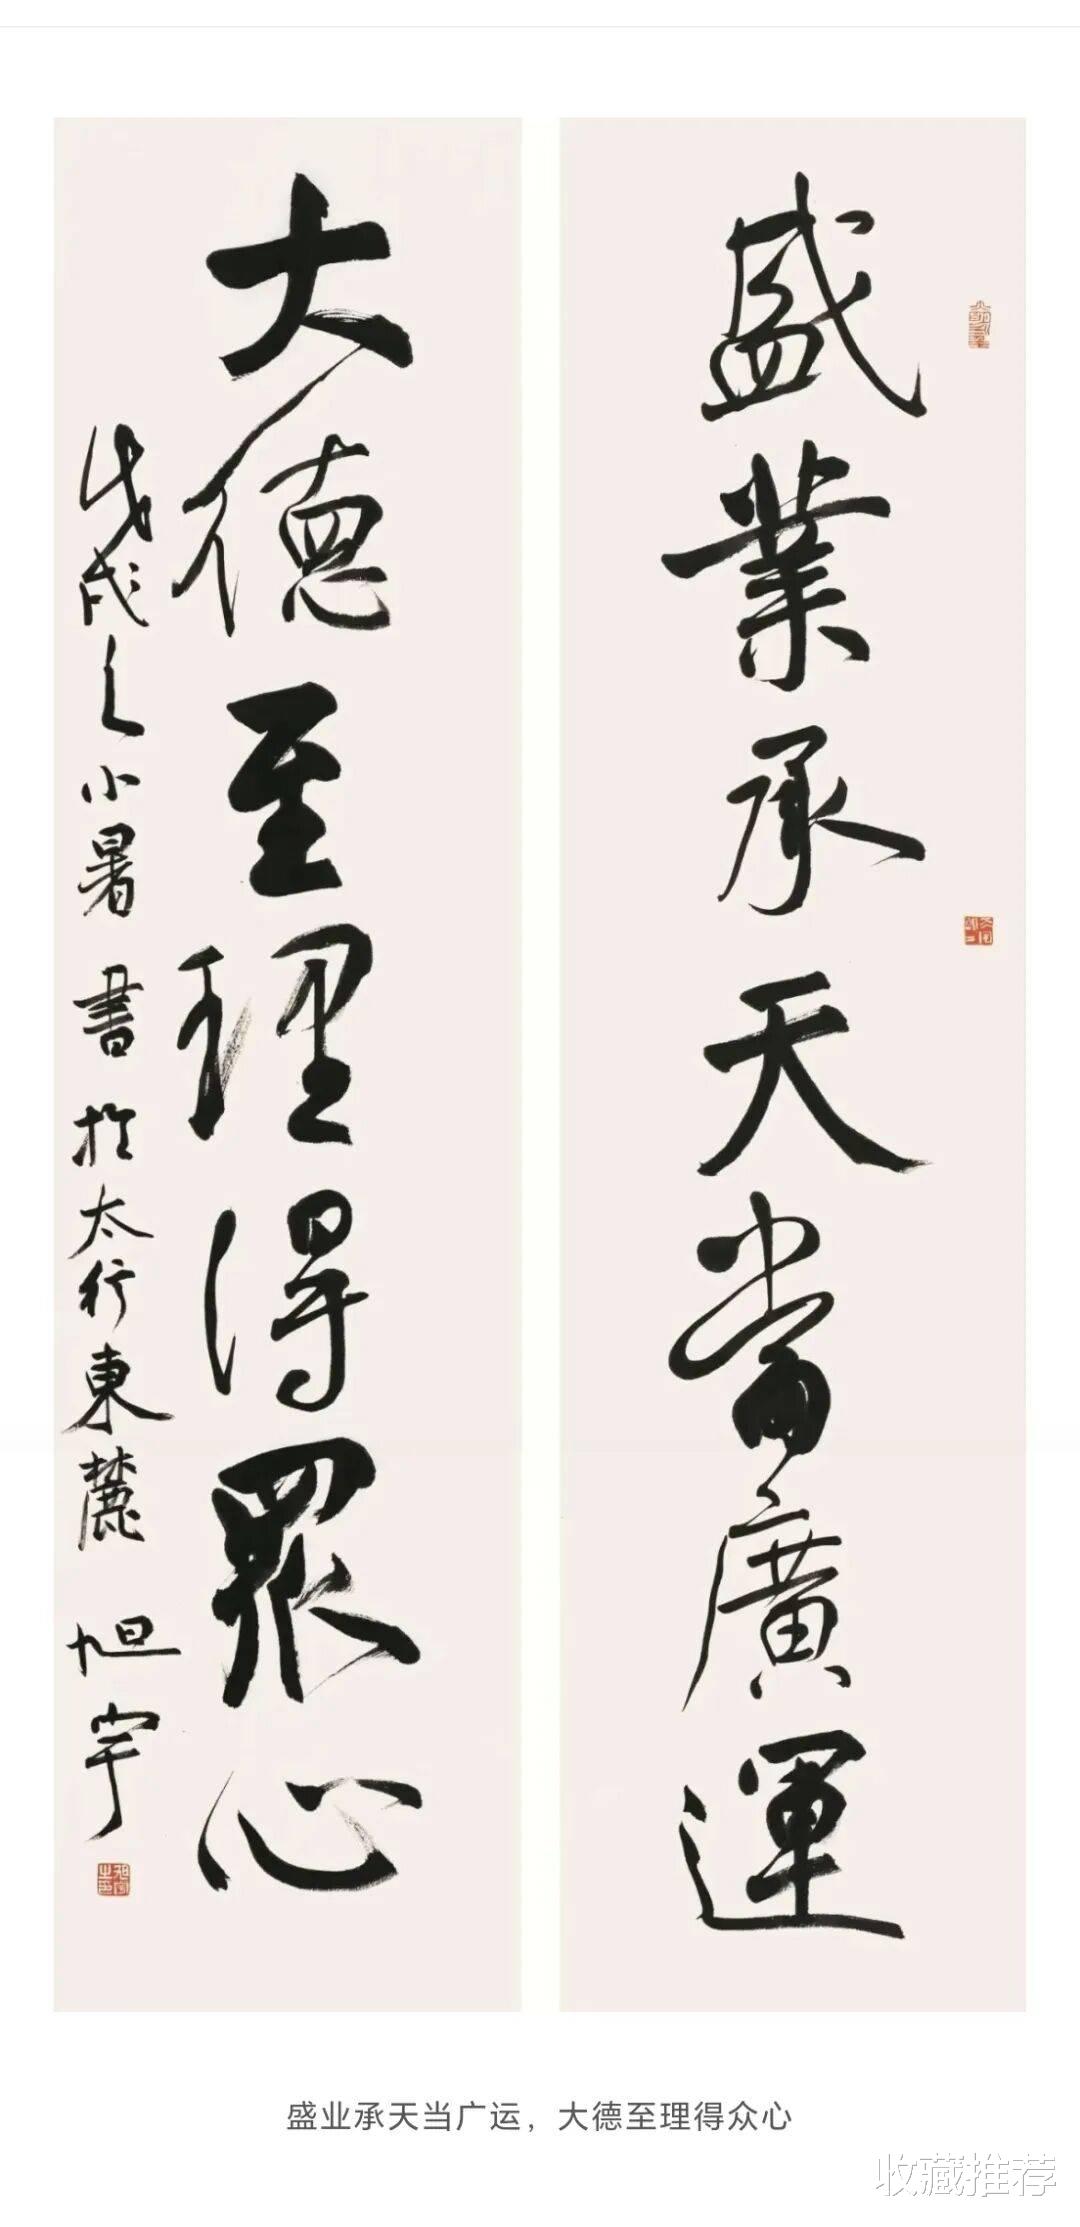 盛業承天當廣運
大德至理得眾心
戊戌之小暑 書於太行東麓 旭宇
盛业承天当广运，大德至理得众心
收藏推荐